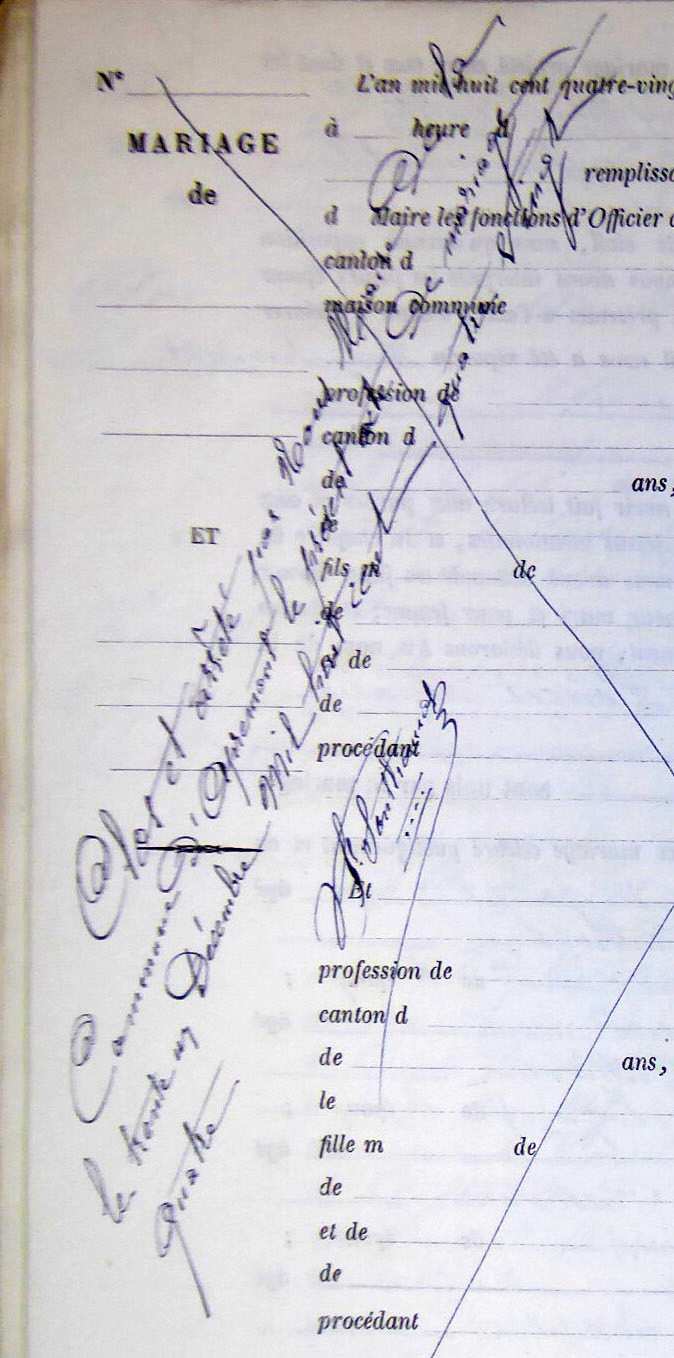 N°
L'an mil huit cent quatre-ving
MARIAGE
à heure d
de
remplisso
d Maire les fonctions d'Officier
canton d
maison commune
profession de
canton d
de ans,
de
ET
fils m de
de
de
de
procédant
Et
profession de
canton d
de ans,
le
fille m de
de
et de
de
procédant
Clos et arrêté par Nous Maire de la
Commune d'Apremont le présent
le trente un Décembre Mil huit cent quatre vingt
quatre